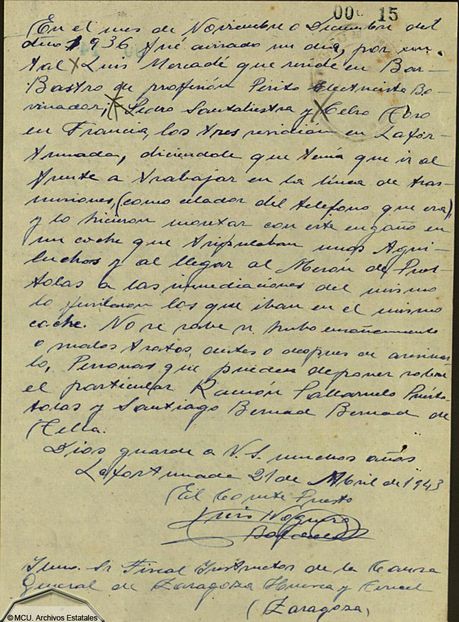 00 15
(En el mes de Noviembre o Diciembre del
año 1936 fué avisado un dia, por un
tal X Luis Mercadé que reside en Bar-
bastro de profesión Perito electricista Bo-
vinador, X Pedro Santaliestra y X Celso Oro
en Francia, los tres residian en Lafor-
tunada, diciendole que tenia que ir al
frente a trabajar en la linea de tras-
misiones, (como celador del telefono que era)
y lo hicieron montar con este engaño en
un coche que tripulaban unos Agui-
luchos y al llegar al Meson de
a las inmediaciones del mismo
lo fusilaron los que iban en el mismo
coche. No se sabe si hubo ensañamiento
o malos tratos, antes o despues de asesinar-
lo, Personas que pueden deponer sobre
el particular Ramón Pallaruelo
y Santiago Bernad Bernad de
Dios guarde a V.S. muchos años
Lafortunada 21 de Abril de 1943
El Cmte Puesto
Luis Noguero
Ilmo. Sr. Fiscal Instructor de la Causa
General de Zaragoza Huesca y Teruel
(Zaragoza)
© MCU. Archivos Estatales